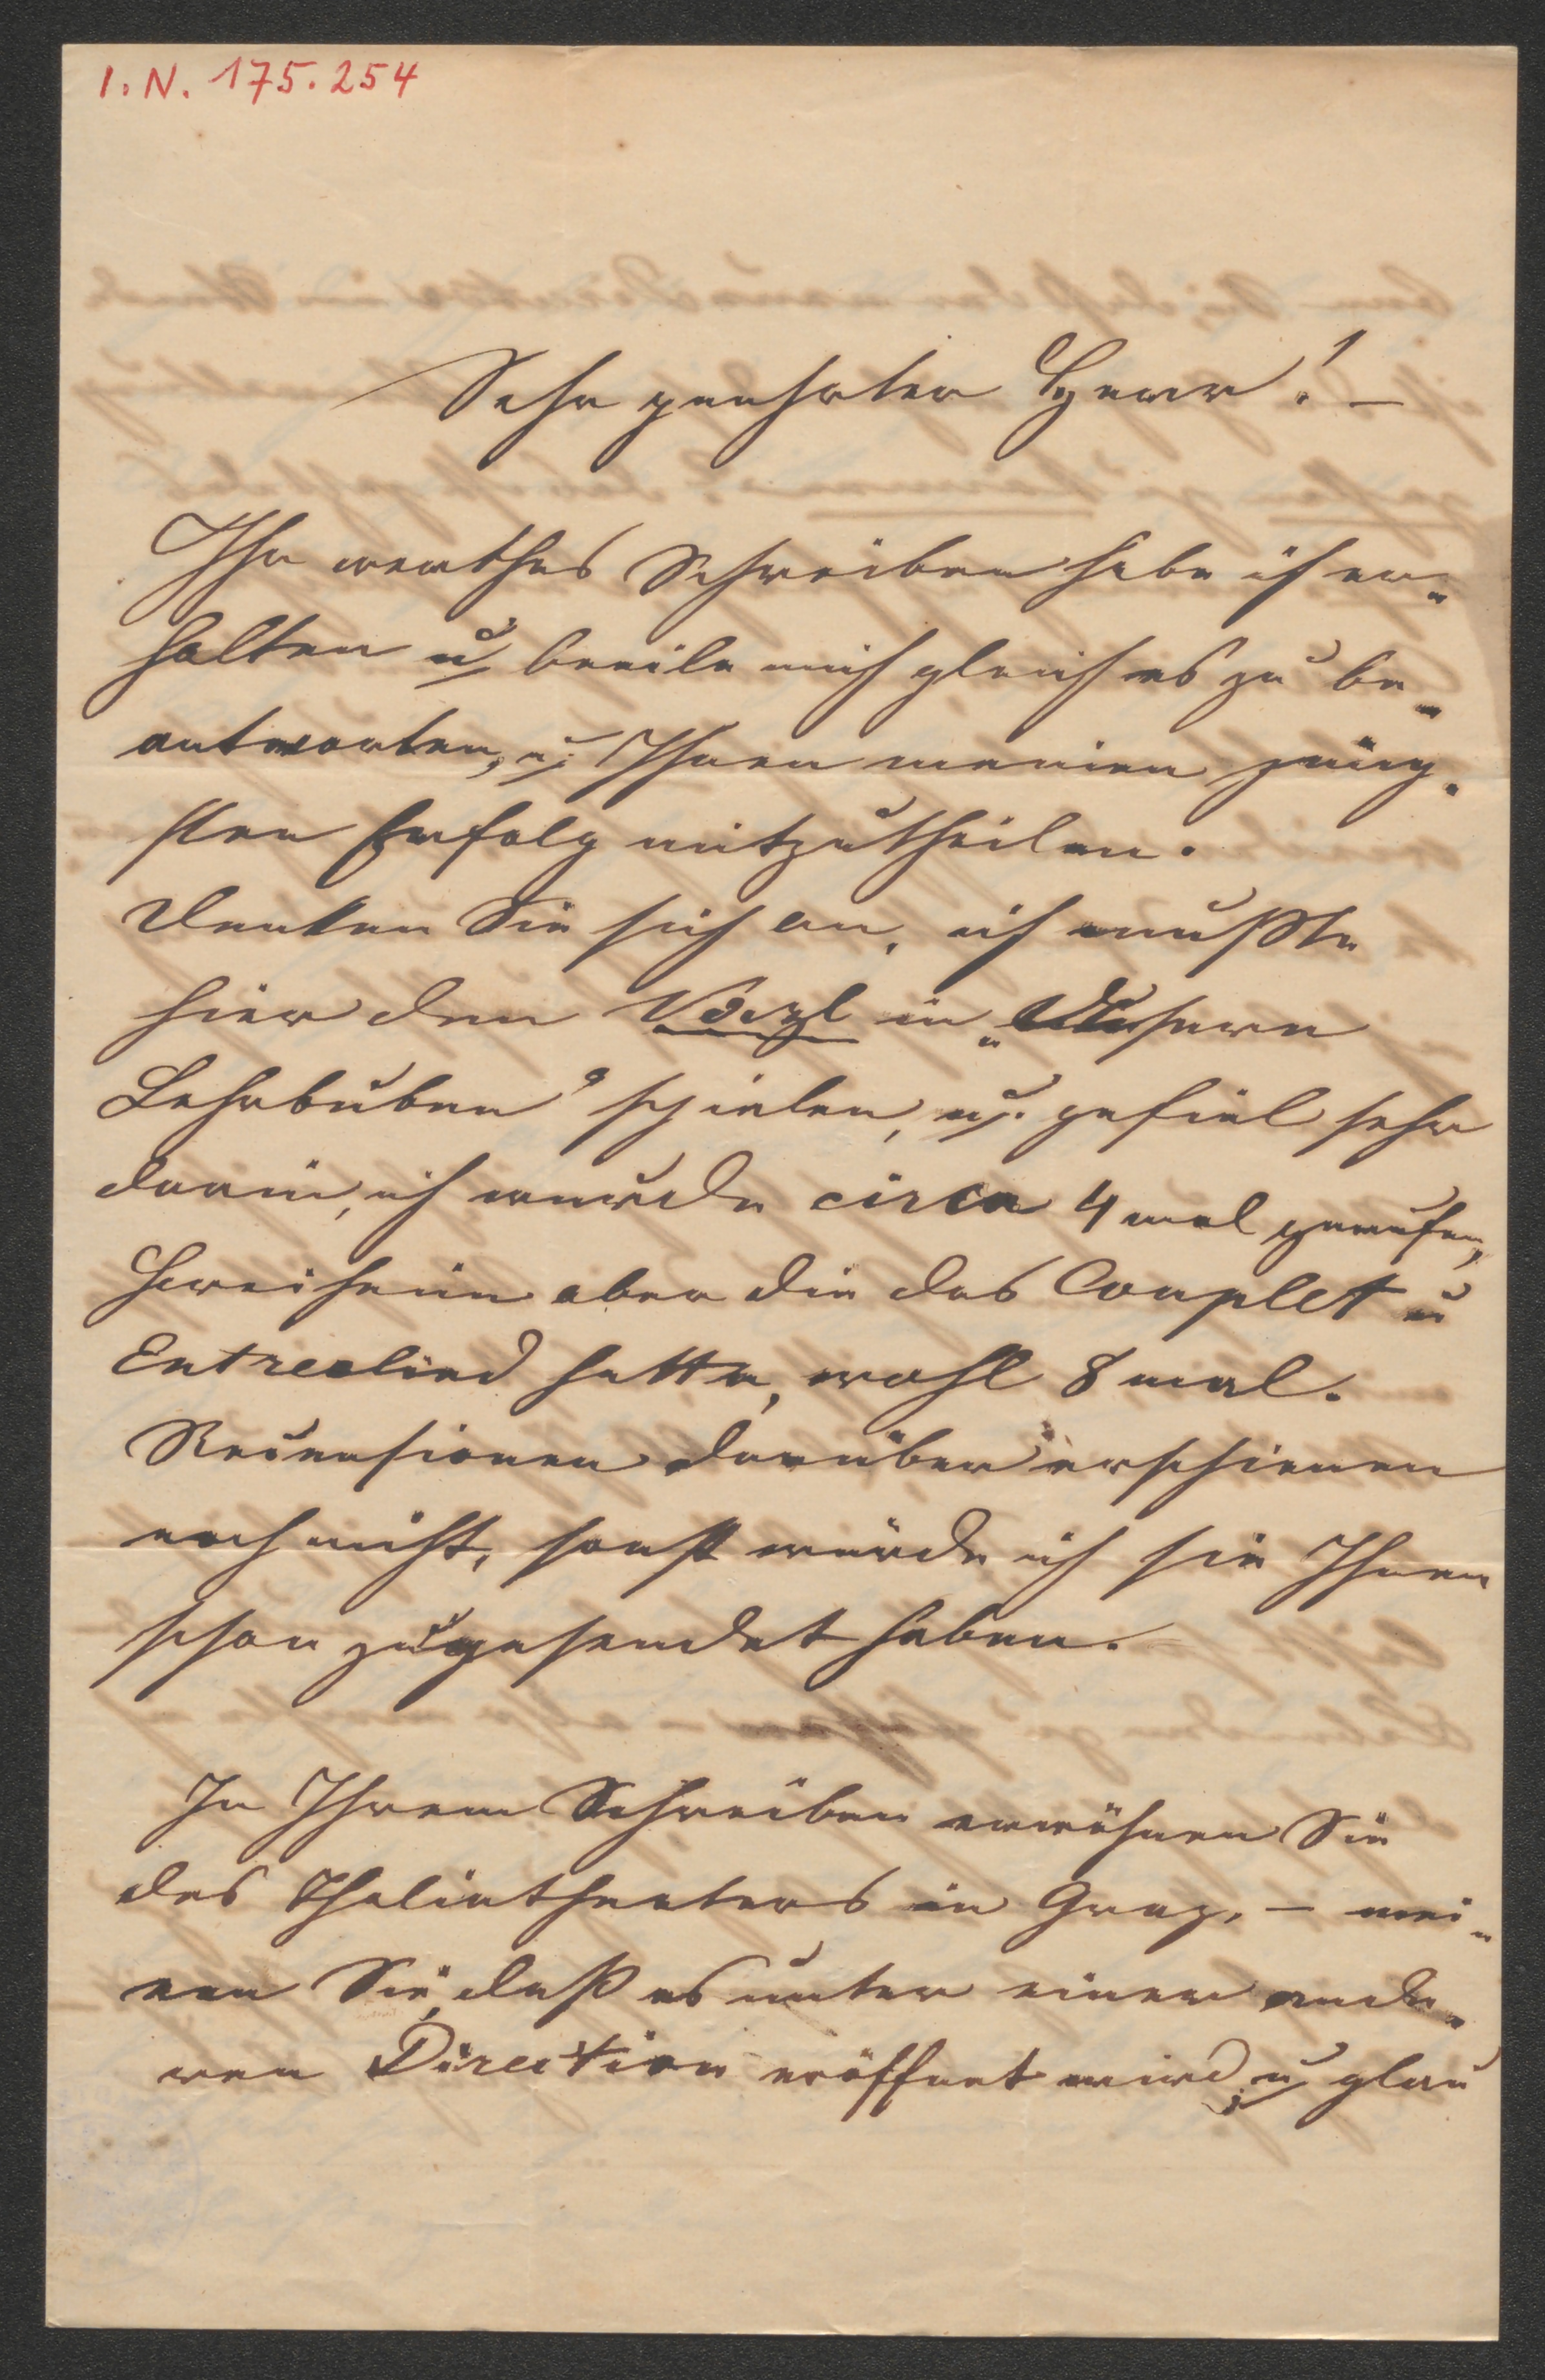 I. N. 175.254
Sehr geehrter Herr! –
Ihr werthes Schreiben habe ich er-
halten u beeile mich gleich es zu be-
antworten, u. Ihnen meinen jüng-
sten Erfolg mitzutheilen.
Denken Sie sich an, ich mußte
hier den in „Unsere
Lehrbuben" spielen, u. gefiel sehr
darin, ich wurde circa 4 mal gerufen,
aber die das Couplet u
Entreelied hatte, wohl 8 mal.
Recensionen darüber erschienen
noch nicht, sonst würde ich sie Ihnen
schon zugesendet haben.
In Ihrem Schreiben erwähnen Sie
des Thaliatheaters in Graz, – mei-
nen Sie, daß es unter einer ande-
ren Direction eröffnet wird, u glau